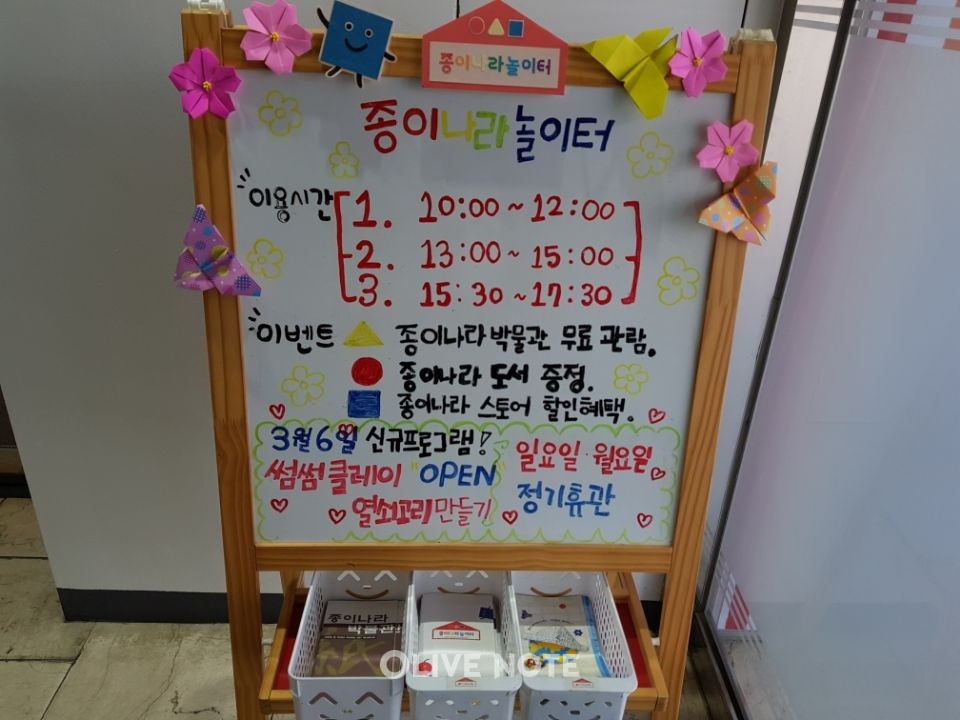 종이나라놀이터
종이나라놀이터
이용시간
1. 10:00 ~ 12:00
2. 13:00 ~ 15:00
3. 15:30 ~ 17:30
이벤트
종이나라 박물관 무료 관람.
종이나라 도서 증정.
종이나라 스토어 할인혜택.
3월 6일 신규프로그램!
썸썸 클레이 "OPEN"
열쇠고리 만들기
일요일·월요일
정기휴관
종이나라
박물관
종이나라놀이터
OLIVE NOTE